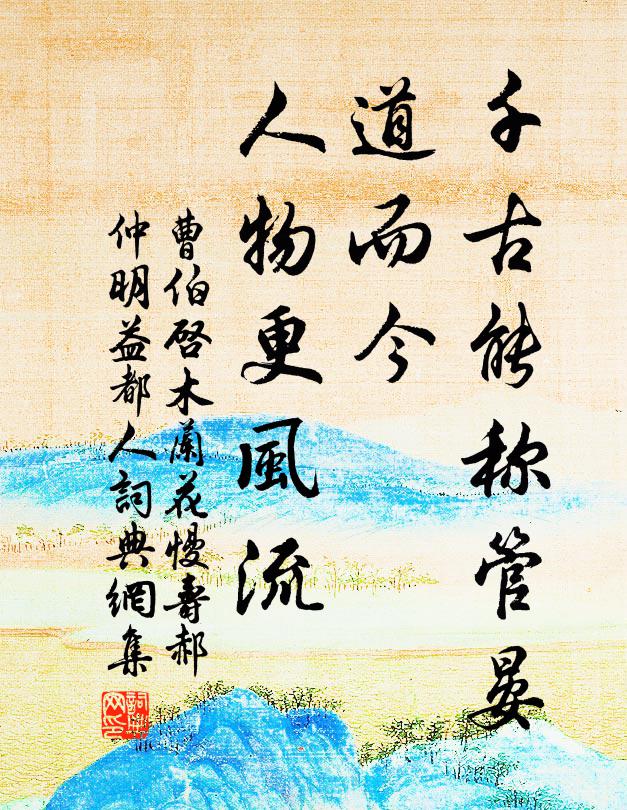 千古能称管晏
道而今
人物更風流
曹伯啓木蘭花慢壽郝
仲明益都人詞典網集